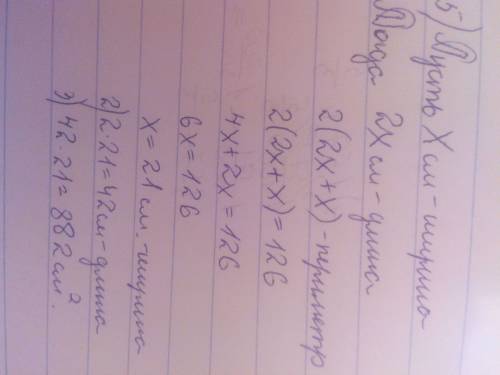 5) Пусть Х см - ширина
Тогда 2х см - длина
2(2х + х) - периметр
2(2х + х) = 126
4х + 2х = 126
6х = 126
х = 21 см. - ширина
2) 2 · 21 = 42 см - длина
3) 42 · 21 = 882 см².